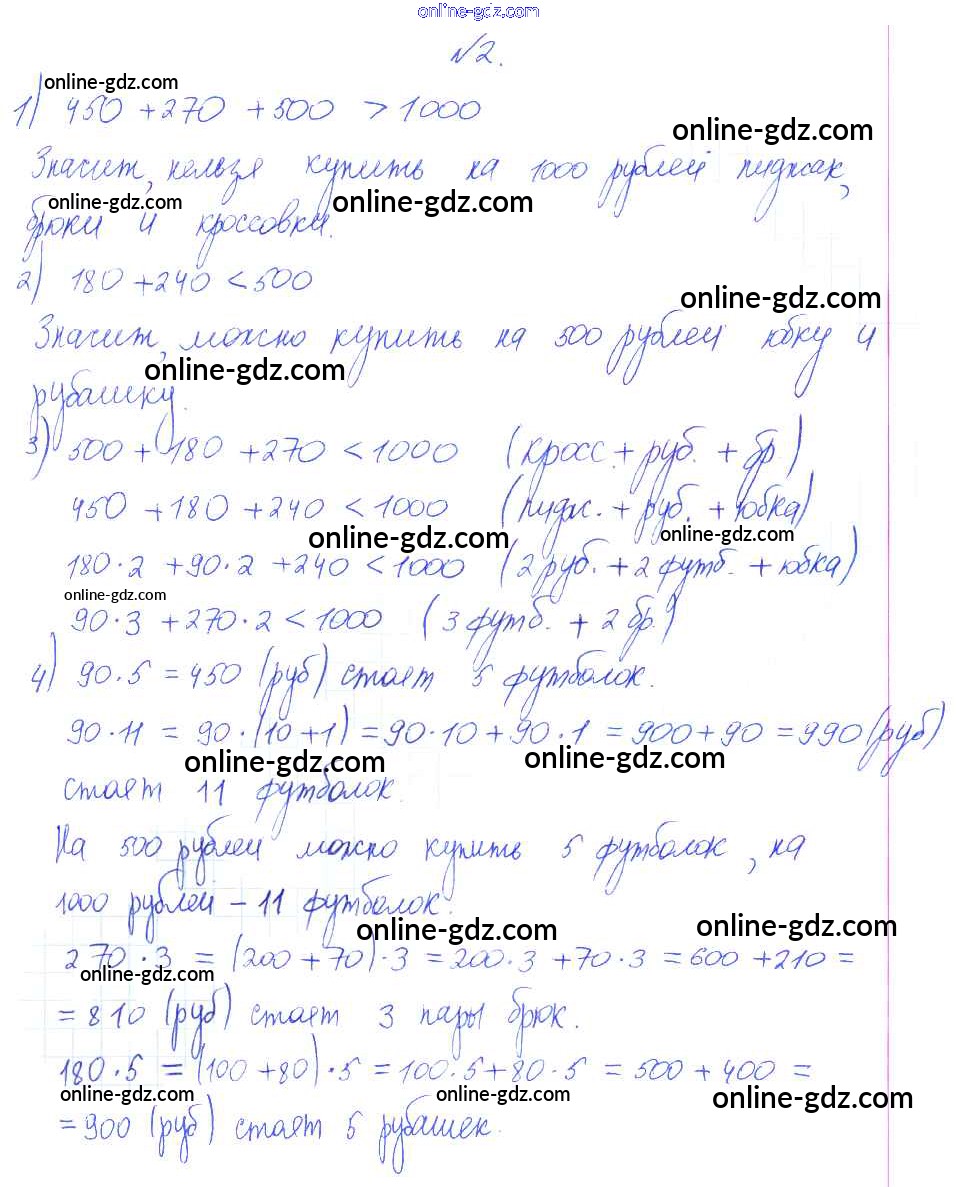 online-gdz.com
№2.
online-gdz.com
1) 450 + 270 + 500 > 1000
online-gdz.com
Значит, нельзя купить на 1000 рублей пиджак,
online-gdz.com online-gdz.com
брюки и кроссовки.
2) 180 + 240 < 500
online-gdz.com
Значит, можно купить на 500 рублей юбку и
online-gdz.com
рубашку.
3) 500 + 180 + 270 < 1000 (кросс. + руб. + бр)
450 + 180 + 240 < 1000 (пидж. + руб. + юбка)
online-gdz.com online-gdz.com
180·2 + 90·2 + 240 < 1000 (2 руб. + 2 футб. + юбка)
online-gdz.com
90·3 + 270·2 < 1000 (3 футб. + 2 бр.)
4) 90·5 = 450 (руб) стоят 5 футболок.
90·11 = 90·(10+1) = 90·10 + 90·1 = 900 + 90 = 990 (руб)
online-gdz.com online-gdz.com
стоят 11 футболок.
На 500 рублей можно купить 5 футболок, на
1000 рублей – 11 футболок.
online-gdz.com online-gdz.com
270·3 = (200 + 70)·3 = 200·3 + 70·3 = 600 + 210 =
online-gdz.com
= 810 (руб) стоят 3 пары брюк.
180·5 = (100 + 80)·5 = 100·5 + 80·5 = 500 + 400 =
online-gdz.com online-gdz.com online-gdz.com
= 900 (руб) стоят 5 рубашек.